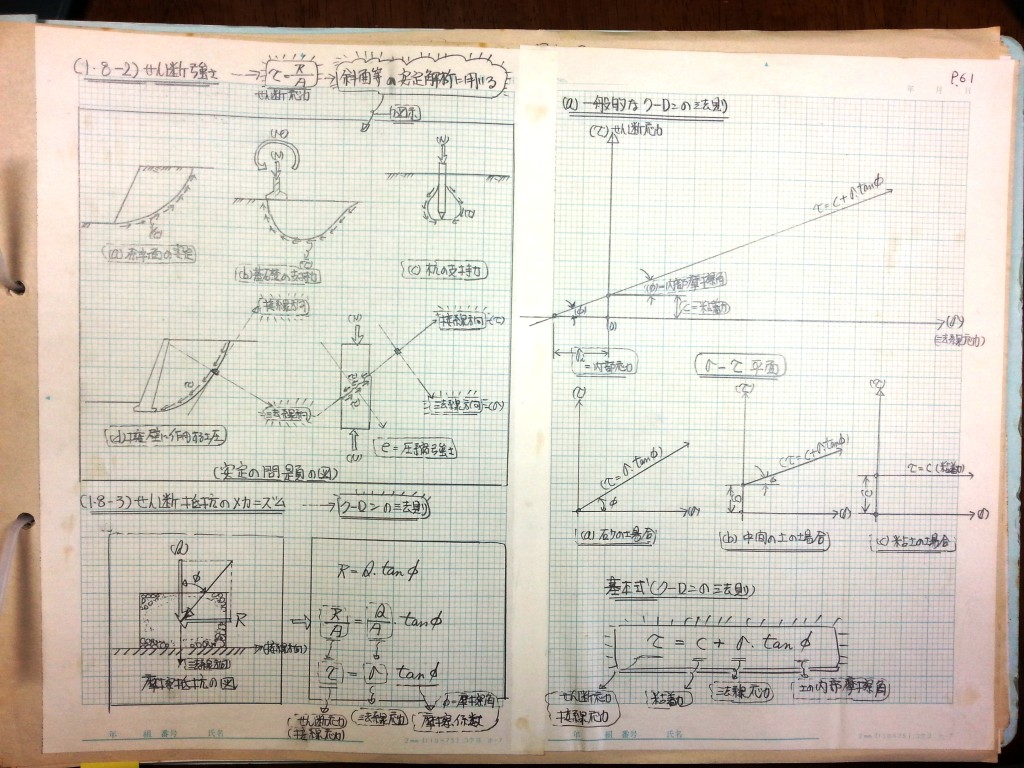 (1・8-2) せん断強さ
τ = R/A
せん断応力
斜面等の安定解析に用いる
図示
(M)
(N)
(N)
(τ)
(τ)
(a) 斜面の安定
(b) 基礎の支持力
(c) 杭の支持力
接線方向
(N)
接線方向-(τ)
τ
法線方向
法線方向-(σ)
(d) 擁壁に作用する土圧
(N)
e = 圧縮強さ
(安定の問題の図)
(1・8-3) せん断抵抗のメカニズム
クーロンの法則
(Q)
φ
R
(接線方向)
(法線方向)
摩擦抵抗の図
R = Q・tanφ
R/A = Q/A・tanφ
τ = σ tanφ
φ-摩擦角
(せん断応力
接線応力)
(法線応力)
摩擦係数
P.61
年 月 日
(a) 一般的なクーロンの法則
(τ) せん断応力
τ = c + σ・tanφ
(φ)-内部摩擦角
(φ)
c = 粘着力
(0)
(σ)
(法線応力)
σi
= 内部応力
σ-τ 平面
(τ)
(τ)
(τ)
(τ = σ・tanφ)
(τ = c + σ・tanφ)
τ = c (粘着力)
φ
φ
c
c
(σ)
(σ)
(σ)
(a) 砂の場合
(b) 中間の土の場合
(c) 粘土の場合
基本式 (クーロンの法則)
τ = c + σ・tanφ
せん断応力
接線応力
粘着力
法線応力
土の内部摩擦角
年 組 番号 氏名
年 組 番号 氏名